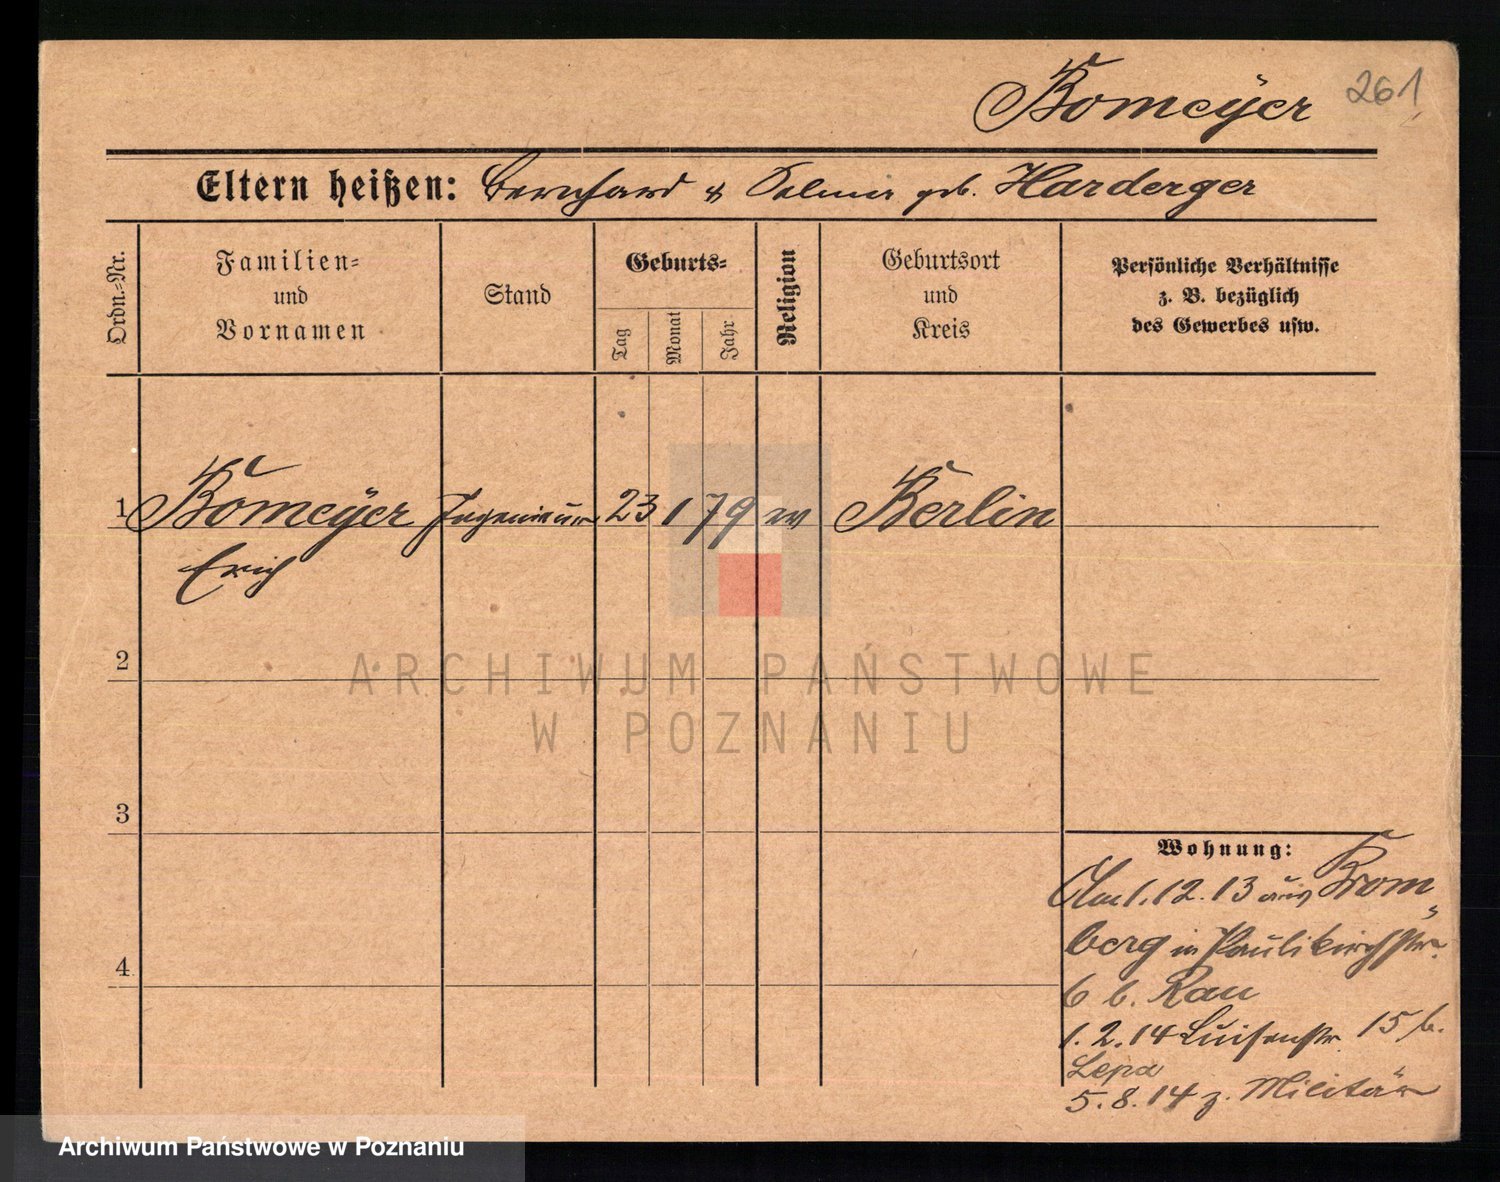 Bomeyer 261
Eltern heißen: Bernhard & Selma geb. Harderger
Ordn.-Nr.
Familien-
und
Vornamen
Stand
Geburts-
Tag
Monat
Jahr
Religion
Geburtsort
und
Kreis
Persönliche Verhältnisse
z. B. bezüglich
des Gewerbes usw.
1 Bomeyer Ingenieur 23 1 79 ev Berlin
Erich
2
3
4
Wohnung:
Am 1.12.13 aus Brom-
berg in Paulikirchstr.
6 b. Rau
1.2.14 Luisenstr. 15 b.
Lepa
5.8.14 z. Militär
ARCHIWUM PAŃSTWOWE
W POZNANIU
Archiwum Państwowe w Poznaniu